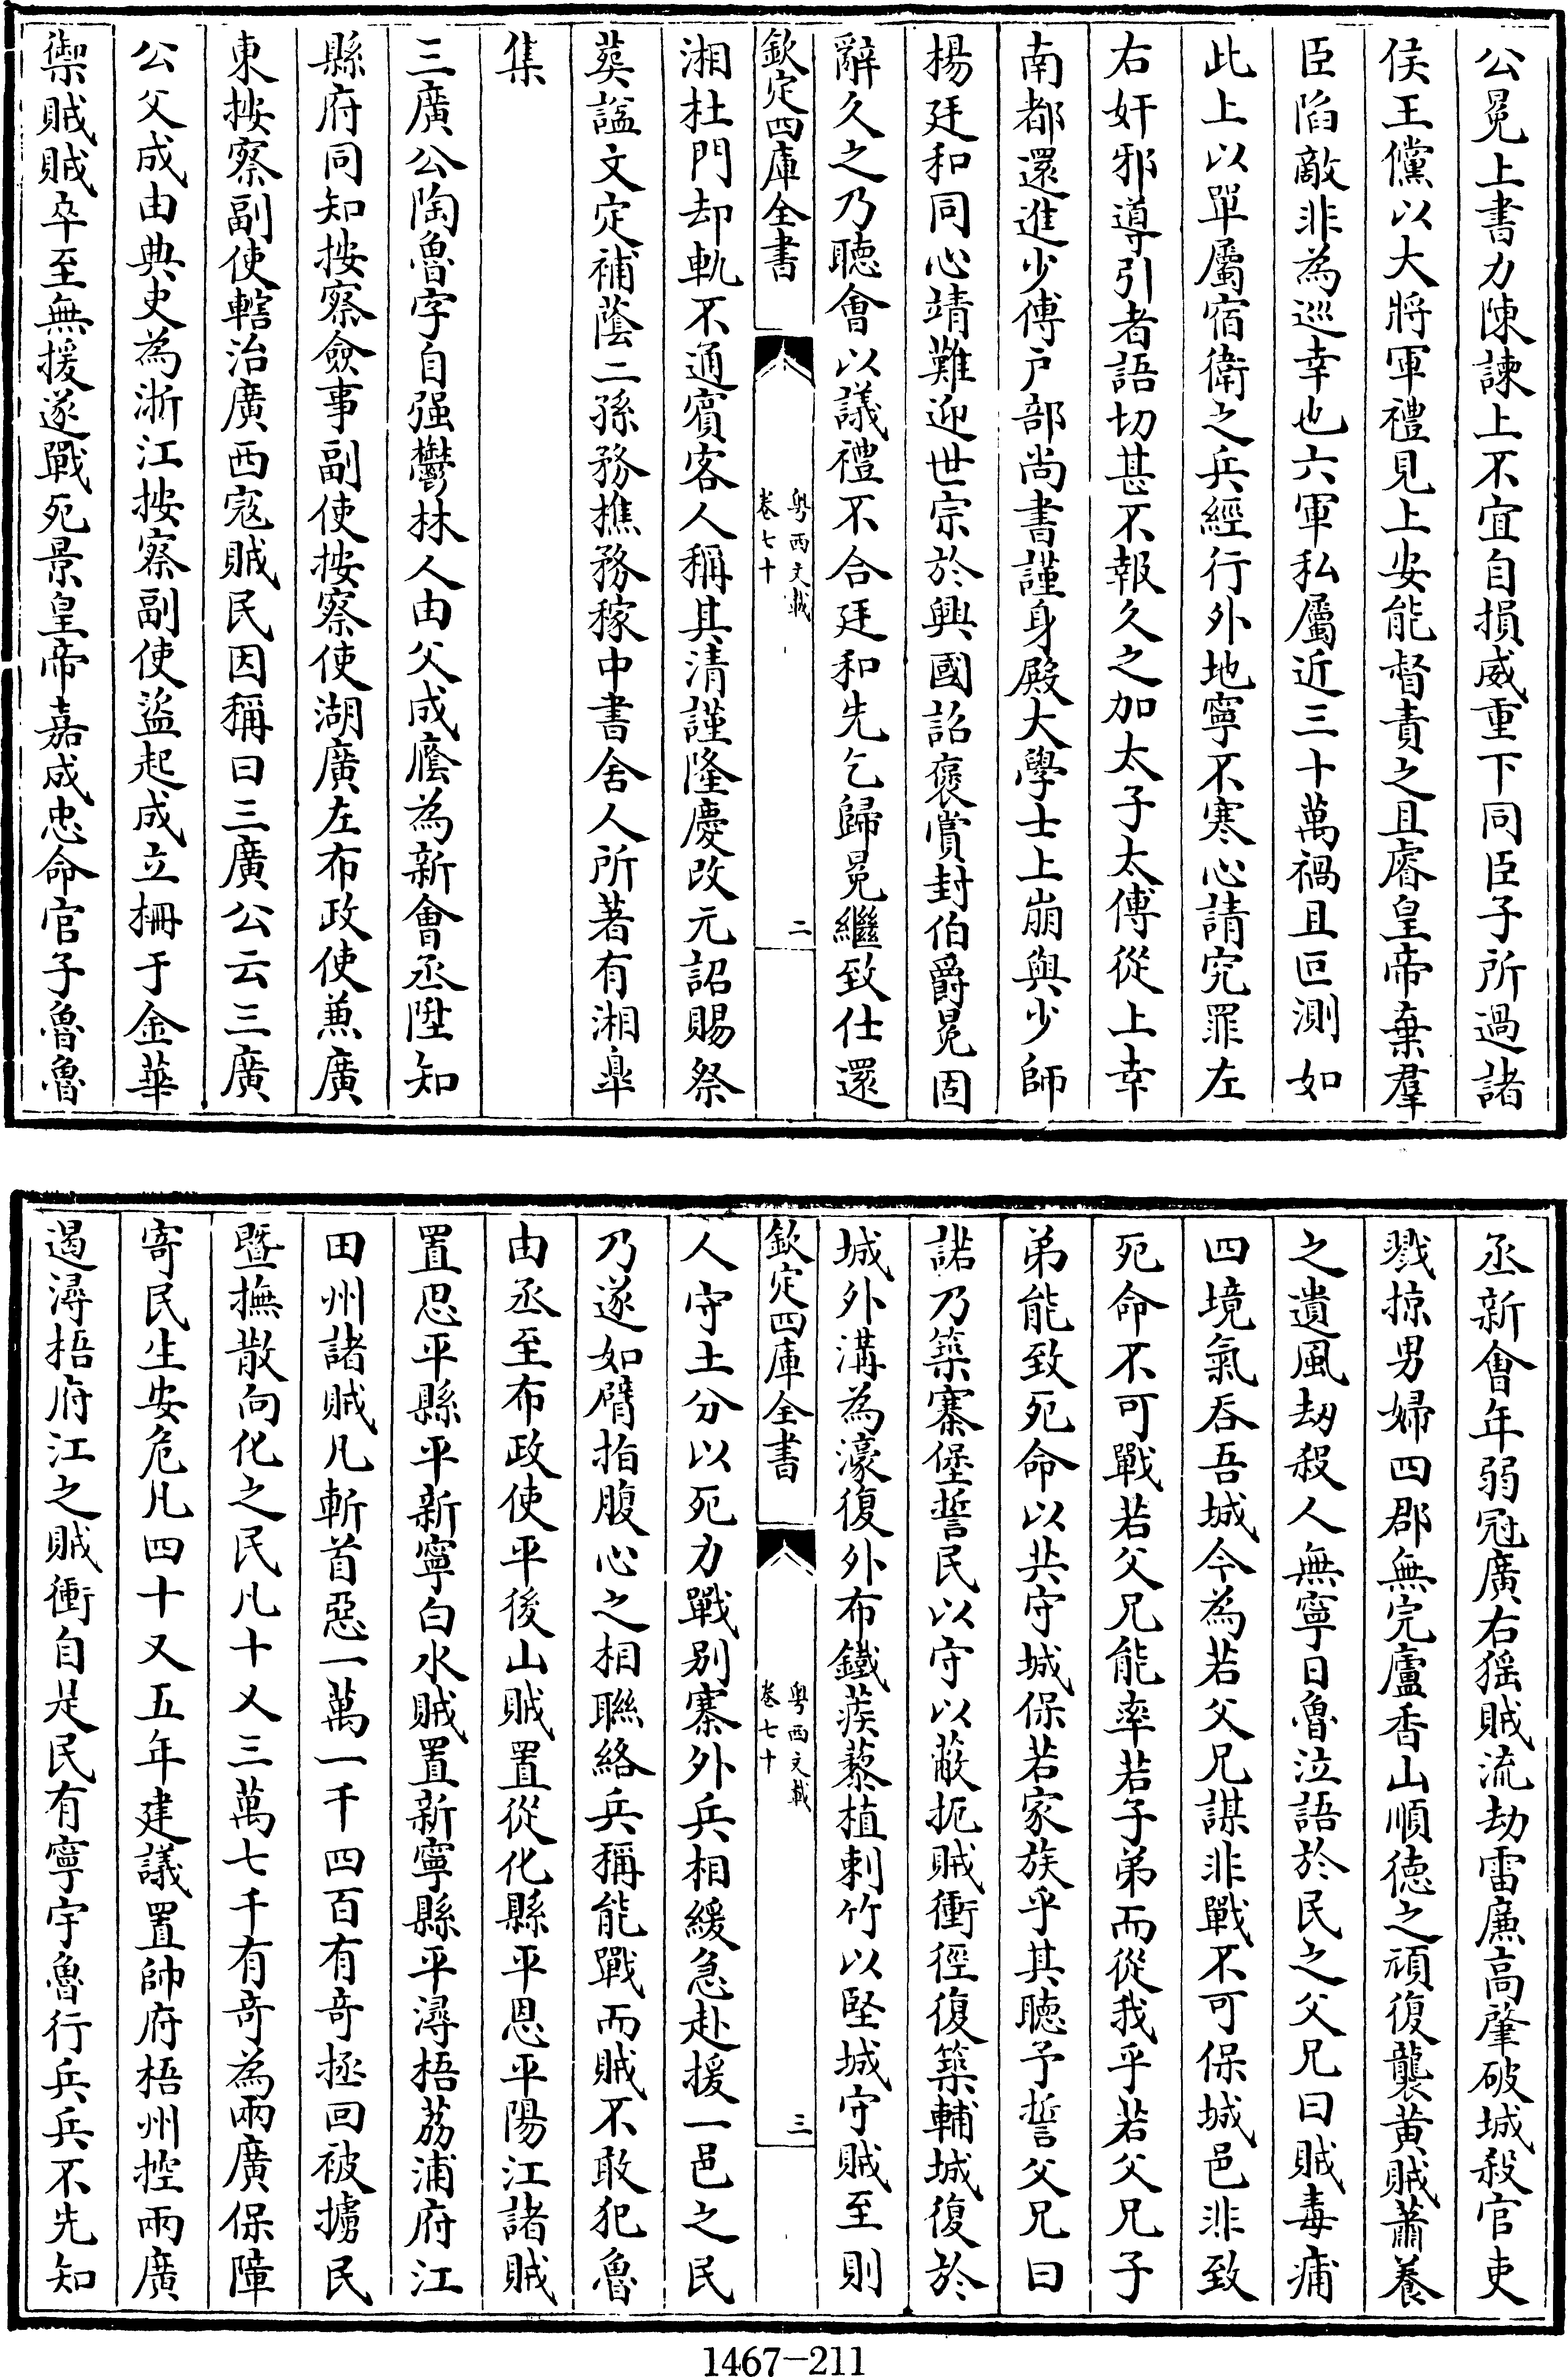 公冕上書力陳諫上不宜自損威重下同臣子所過諸
侯王儻以大將軍禮見上安能督責之且睿皇帝棄羣
臣陷敵非為巡幸也六軍私屬近三十萬禍且叵測如
此上以單屬宿衛之兵經行外地寧不寒心請究罪左
右奸邪導引者語切甚不報久之加太子太傅從上幸
南都還進少傅户部尚書謹身殿大學士上崩與少師
楊廷和同心靖難迎世宗於興國詔褒賞封伯爵冕固
辭久之乃聽會以議禮不合廷和先乞歸冕繼致仕還
欽定四庫全書
粤西文載
卷七十
二
湘杜門却軌不通賓客人稱其清謹隆慶改元詔賜祭
葬諡文定補蔭二孫務樵務稼中書舍人所著有湘臯
集
三廣公陶魯字自强鬱林人由父成廕為新會丞陞知
縣府同知按察僉事副使按察使湖廣左布政使兼廣
東按察副使轄治廣西寇賊民因稱曰三廣公云三廣
公父成由典史為浙江按察副使盜起成立柵于金華
禦賊賊卒至無援遂戰死景皇帝嘉成忠命官子魯魯
丞新會年弱冠廣右猺賊流劫雷亷高肇破城殺官吏
戮掠男婦四郡無完廬香山順德之頑復襲黄賊蕭養
之遺風刼殺人無寧日魯泣語於民之父兄曰賊毒痡
四境氣吞吾城今為若父兄謀非戰不可保城邑非致
死命不可戰若父兄能率若子弟而從我乎若父兄子
弟能致死命以共守城保若家族乎其聽予誓父兄曰
諾乃築寨堡誓民以守以蔽扼賊衝徑復築輔城復於
城外溝為濠復外布鐵蒺藜植刺竹以堅城守賊至則
欽定四庫全書
粤西文載
卷七十
三
人守土分以死力戰别寨外兵相緩急赴援一邑之民
乃遂如臂指腹心之相聯絡兵稱能戰而賊不敢犯魯
由丞至布政使平後山賊置從化縣平恩平陽江諸賊
置恩平縣平新寧白水賊置新寧縣平潯梧荔浦府江
田州諸賊凡斬首惡一萬一千四百有奇拯回被擄民
暨撫散向化之民凡十又三萬七千有奇為兩廣保障
寄民生安危凡四十又五年建議置帥府梧州控兩廣
遏潯梧府江之賊衝自是民有寧宇魯行兵兵不先知
1467-211